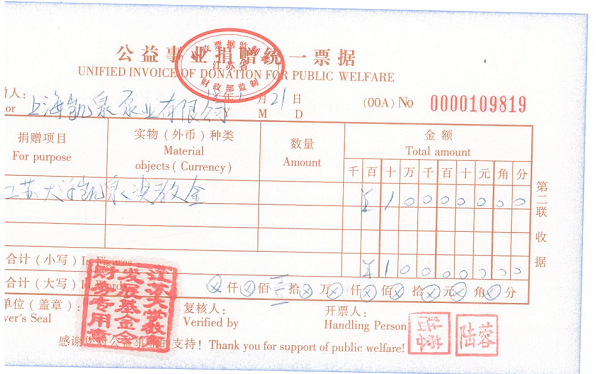 公益事业捐赠统一票据
UNIFIED INVOICE OF DONATION FOR PUBLIC WELFARE
江苏省
财政部监制
人: 上海凯泉泵业有限公司 月21日
or M D (00A) No 0000109819
捐赠项目 实物（外币）种类 数量 金额
For purpose Material Amount Total amount
objects (Currency) 千 百 十 万 千 百 十 元 角 分
江苏大学凯泉奖教金 ¥ 1 0 0 0 0 0 0 0
第二联 收据
合计（小写） In Figures ¥ 1 0 0 0 0 0 0 0
合计（大写） ⊗仟⊗佰 拾⊗万⊗仟⊗佰⊗拾⊗元⊗角⊗分
江苏大学教育发展基金会财务专用章
单位（盖章）： 复核人： 开票人：
er's Seal Verified by Handling Person 陆蓉
感谢 支持！ Thank you for support of public welfare!